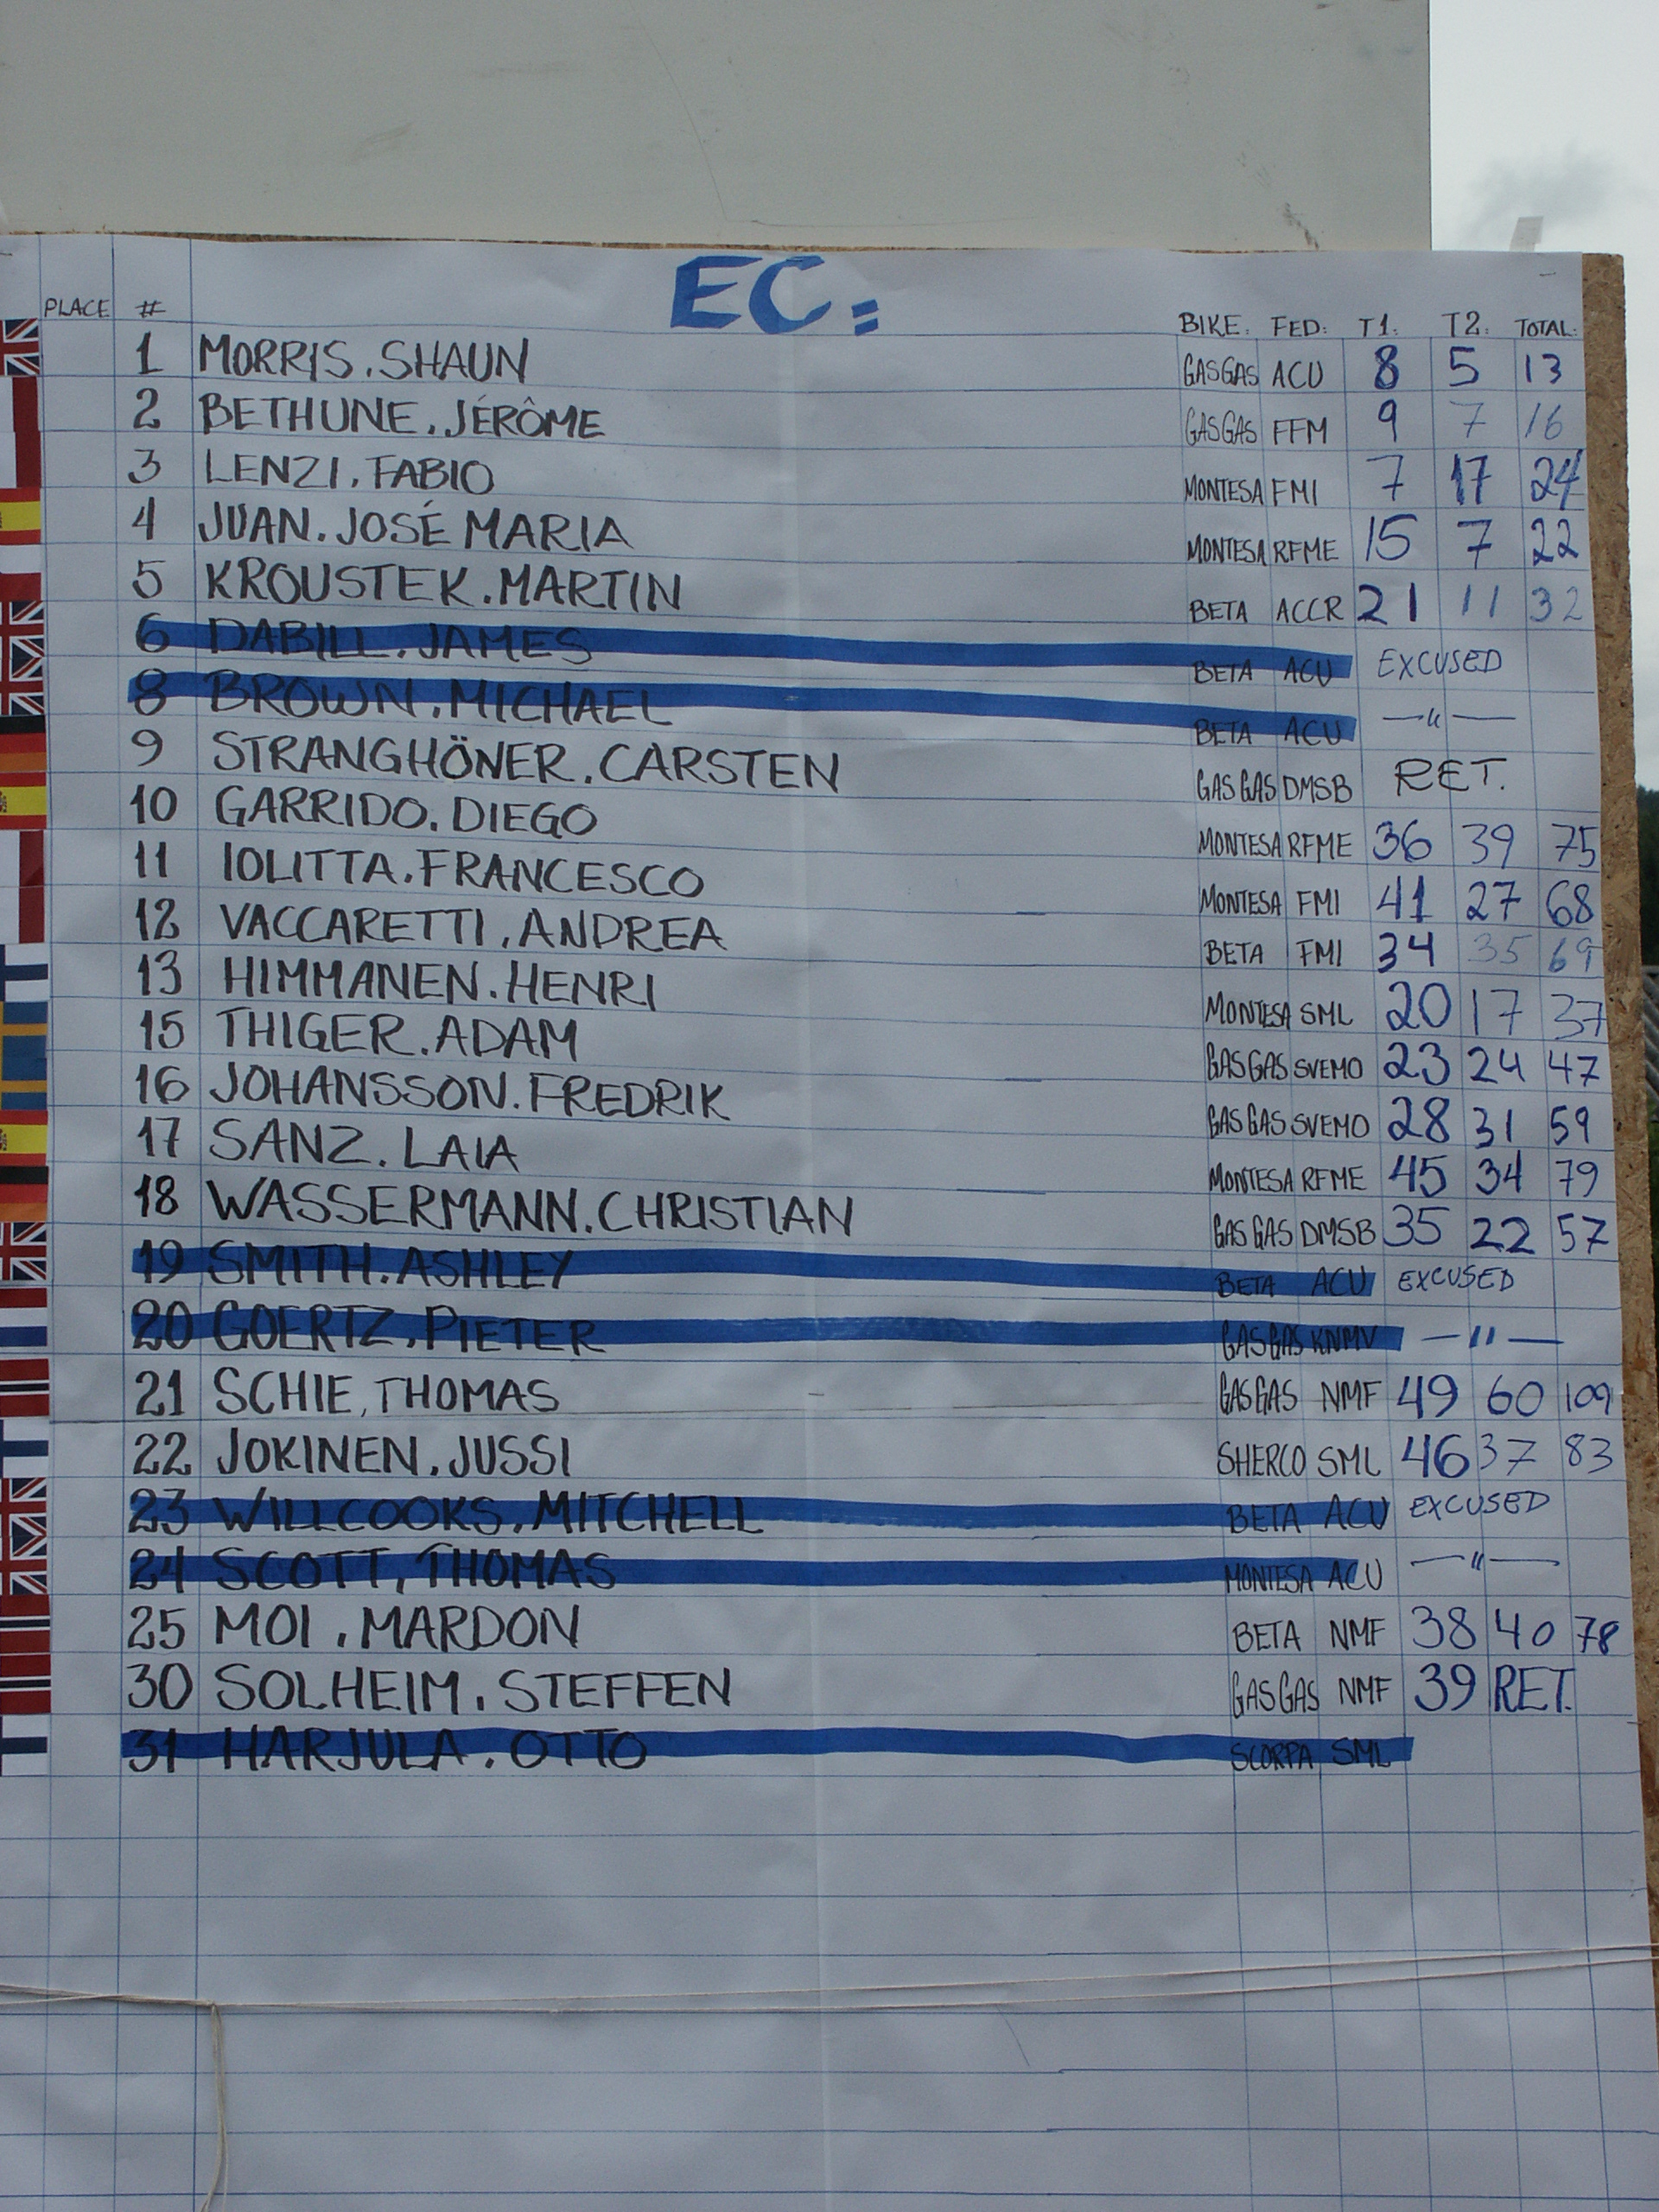 EC:
PLACE # BIKE: FED: T1: T2: TOTAL:
1 MORRIS.SHAUN GASGAS ACU 8 5 13
2 BETHUNE.JÉRÔME GASGAS FFM 9 7 16
3 LENZI.FABIO MONTESA FMI 7 17 24
4 JUAN.JOSÉ MARIA MONTESA RFME 15 7 22
5 KROUSTEK.MARTIN BETA ACCR 21 11 32
6 DABILL.JAMES BETA ACU EXCUSED
8 BROWN.MICHAEL BETA ACU —"—
9 STRANGHÖNER.CARSTEN GASGAS DMSB RET.
10 GARRIDO.DIEGO MONTESA RFME 36 39 75
11 IOLITTA.FRANCESCO MONTESA FMI 41 27 68
12 VACCARETTI.ANDREA BETA FMI 34 35 69
13 HIMMANEN.HENRI MONTESA SML 20 17 37
15 THIGER.ADAM GASGAS SVEMO 23 24 47
16 JOHANSSON.FREDRIK GASGAS SVEMO 28 31 59
17 SANZ.LAIA MONTESA RFME 45 34 79
18 WASSERMANN.CHRISTIAN GASGAS DMSB 35 22 57
19 SMITH.ASHLEY BETA ACU EXCUSED
20 GOERTZ.PIETER GASGAS KNMV —"—
21 SCHIE,THOMAS GASGAS NMF 49 60 109
22 JOKINEN.JUSSI SHERCO SML 46 37 83
23 WILLCOOKS.MITCHELL BETA ACU EXCUSED
24 SCOTT,THOMAS MONTESA ACU —"—
25 MOI.MARDON BETA NMF 38 40 78
30 SOLHEIM.STEFFEN GASGAS NMF 39 RET.
31 HARJULA.OTTO SCORPA SML